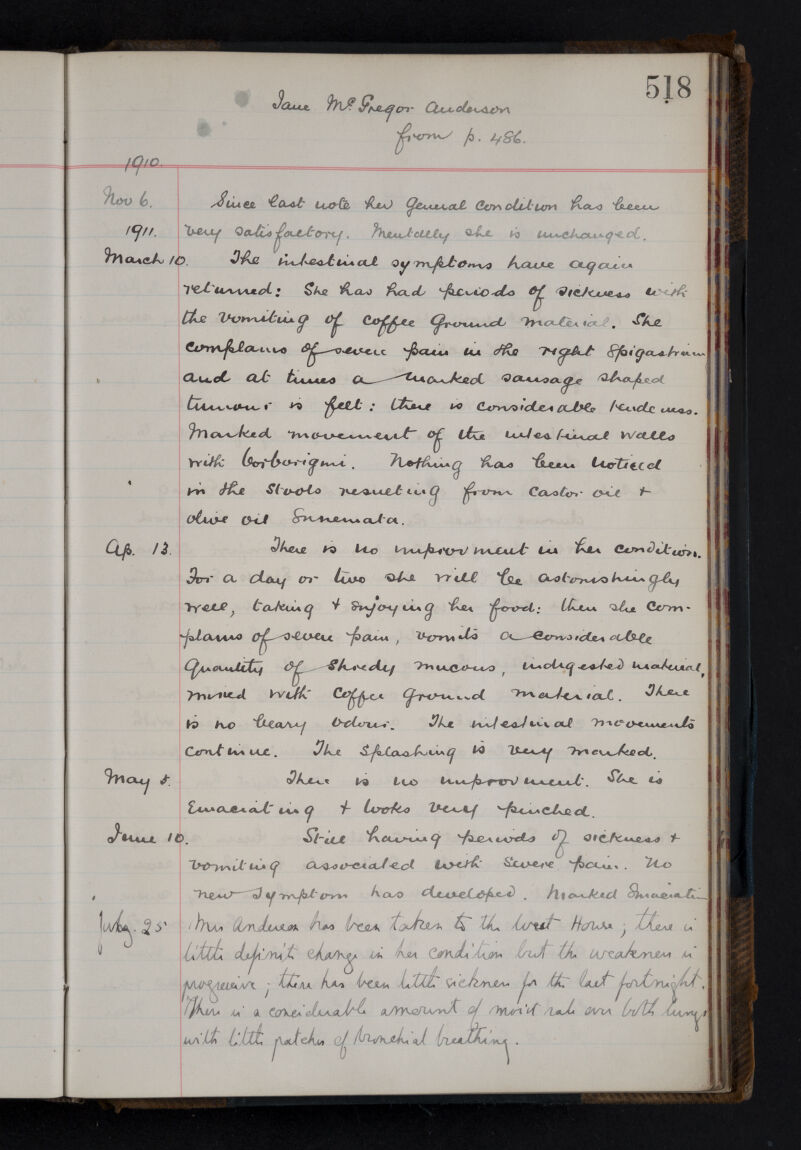 518
Jane McGregor Anderson
from p. 486.
1910.
Nov 6. Since last note her general condition has been
1911. very satisfactory. Mentally she is unchanged.
March 10. The intestinal symptoms have again
returned: She has had periods of sickness with
the vomiting of coffee ground material. She
complains of severe pain in the right Epigastrium
and at times a marked sausage shaped
tumour is felt: there is considerable tenderness.
Marked movement of the intestinal walls
with borborigmi. Nothing has been noticed
in the stools resulting from castor oil +
olive oil Ennemata.
Ap. 13. There is no improvment in her condition.
For a day or two she will be astonishingly
well, taking + enjoying her food: then she com-
plains of severe pain, vomits a considerable
quantity of shredy mucous, indigested material,
mixed with coffee ground material. There
is no beary odour. The intestinal movements
continue. The splashing is very marked.
May 5. There is no improvment. She is
Emaciating + looks very pinched.
June 10. Still having periods of sickness +
vomiting associated with severe pain. No
new symptom has developed. Marked Emaciation
July. 25 Mrs Anderson has been taken to the West House; there is
little definite change in her condition but the weakness is
progressive; there has been little sickness for the last fortnight.
There is a considerable amount of moist rale over both lungs
with little patches of bronchial breathing.